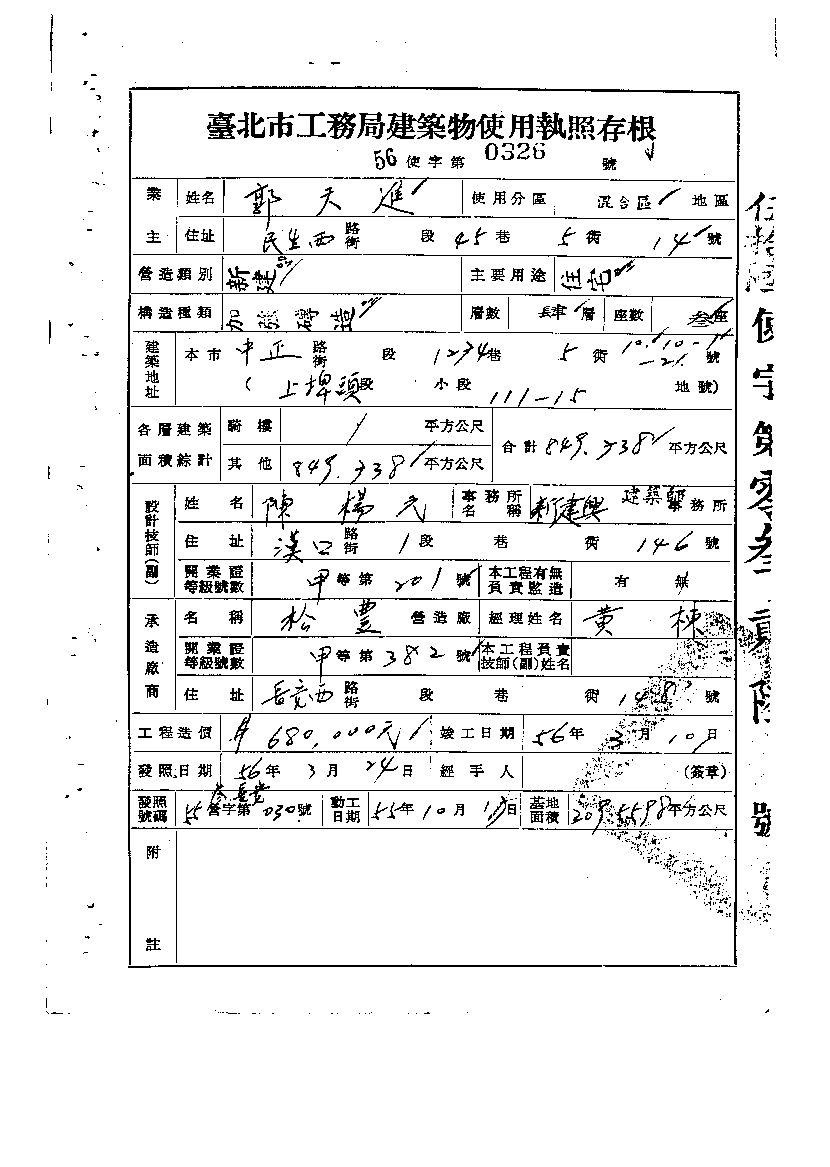 臺北市工務局建築物使用執照存根
56 使字第 0326 號
業主 姓名 郭天進 使用分區 混合區 地區
住址 民生西 路街 段 45 巷 5 街 14 號
營造類別 新建 主要用途 住宅
構造種類 加強磚造 層數 肆 層 座數 叁 座
建築地址 本市 中正 路街 段 1234 巷 5 街 號
( 上埤頭 段 小段 111-15 地號)
各層建築面積綜計 騎樓 / 平方公尺 合計 平方公尺
其他 平方公尺
設計技師(副) 姓名 陳楊元 事務所名稱 新建興 建築師 事務所
住址 漢口 路街 1 段 巷 街 146 號
開業證等級號數 甲 等第 201 號 本工程有無負責監造 有 無
承造廠商 名稱 松豐 營造廠 經理姓名 黃棟
開業證等級號數 甲 等第 382 號 本工程負責技師(副)姓名
住址 路街 段 巷 街 號
工程造價 680,000元 竣工日期 56 年 3 月 10 日
發照日期 56 年 3 月 24 日 經手人 (簽章)
發照號碼 55 營字第 030 號 動工日期 55 年 10 月 日 基地面積 209.5598 平方公尺
附註
伍拾陸使字第零叁貳陸號